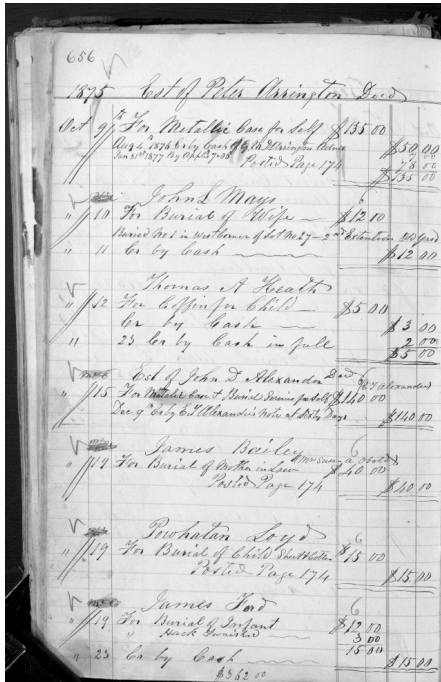 656
1875 Est of Peter Arrington Decd
Oct 9th For Metallic Case for Self $135 00
Aug 4th 1876 Cr by Cash of Arrington $50 00
Jan 31st 1877 By 7.00 78 00
Posted Page 174 $135 00
John L Mays 6
" 10 For Burial of Wife $12 00
Buried No 1 in West Corner of Lot No 27 - 2nd Extention
" 11 Cr by Cash $12 00
Thomas A Heath
" 12 For Coffin for Child $5 00
Cr by Cash $3 00
" 23 Cr by Cash in full 2 00
$5 00
Est of John D Alexander Decd 6
" 15 For Metalic Case & Burial for Self $140 00
Dec 9th Cr by Alexander's Note at Sixty Days $140 00
James Bailey 6
" 19 For Burial of Mother in law $40 00
Posted Page 174 $40 00
Powhatan Loyd 6
" 19 For Burial of Child $15 00
Posted Page 174 $15 00
James Ford 6
" 19 For Burial of Infant $12 00
" Hack 3 00
15 00
" 23 Cr by Cash $15 00
$362 00